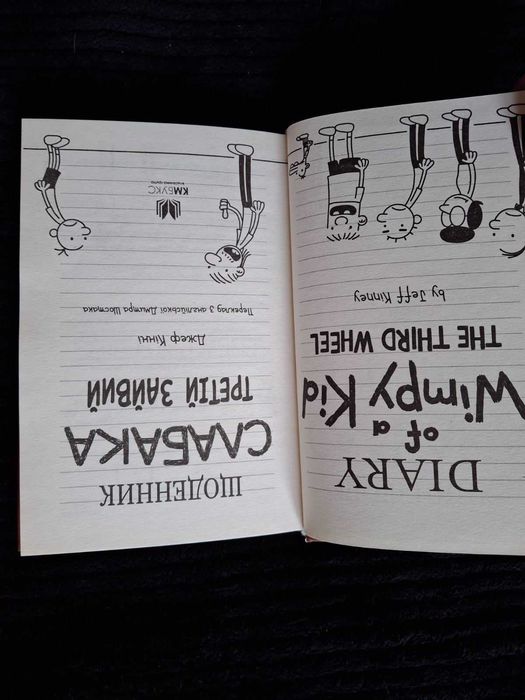 DIARY
of a
Wimpy Kid
THE THIRD WHEEL
by Jeff Kinney
ЩОДЕННИК
СЛАБАКА
ТРЕТІЙ ЗАЙВИЙ
Джеф Кінні
Переклад з англійської Дмитра Шостака
КМБУКС